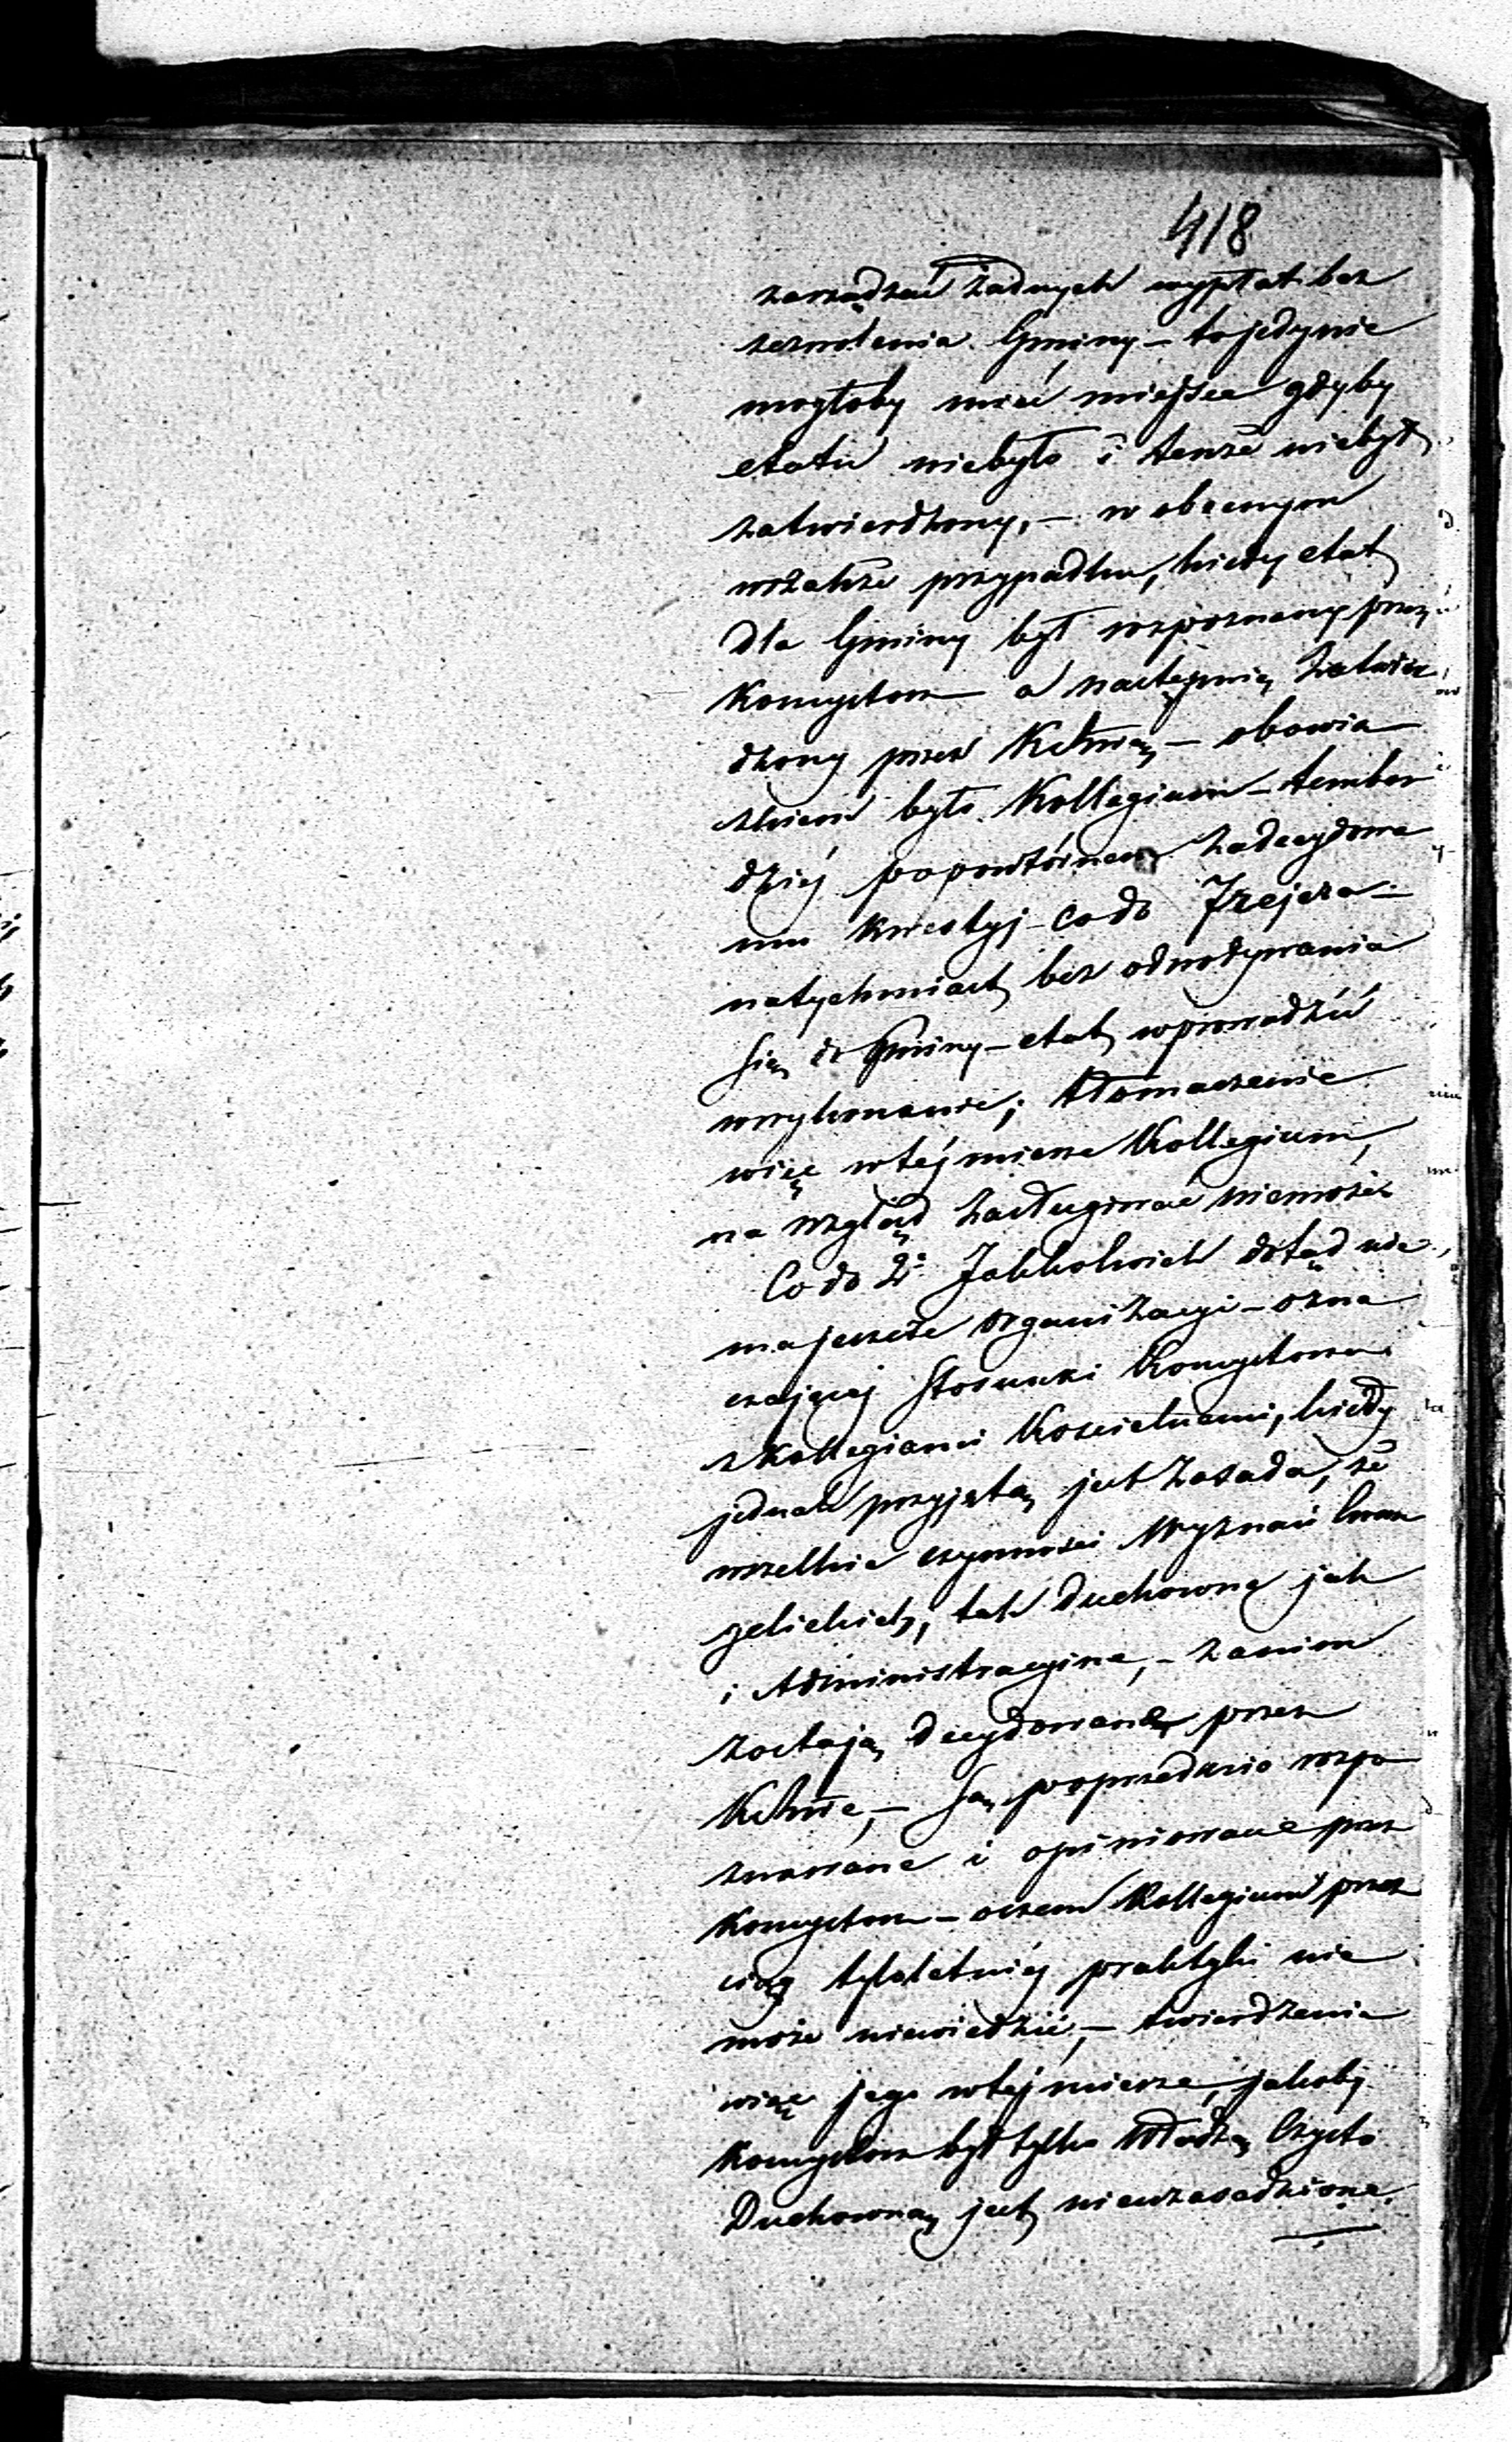 418
zarządzać żadnych wypłat bez
zezwolenia Gminy – to jedynie
mogłoby mieć miejsce gdyby
etatu niebyło i tenże niebył
zatwierdzony, – w obecnym
wszakże przypadku, kiedy etat
dla Gminy był rozpoznany przez
Konsystorz a następnie zatwier
dzony przez – obowią
zkiem było Kollegium – tembar
dziéj popowtórnem zadecydowa
niu kwestyj – co do
natychmiast bez odwoływania
się do Gminy – etat wprowadzić
wwykonanie; tłomaczenie
więc wtéj mierze Kollegium,
na wzgląd zasługiwać niemoże
Co do 2° Jakkolwiek dotąd nie
ma jeszcze organizacyi – ozna
czającej stosunki Konsystorza
z Kollegiami Kościelnemi, kiedy
jednak przyjętą jest zasada, że
wszelkie czynności Wyznań Ewan
gelickich, tak Duchowne jak
i Administracyjne, – zanim
zostają decydowane przez
– są poprzednio rozpo
znawane i opiniowane przez
Konsystorz – oczem Kollegium przez
ciąg tyloletniéj praktyki nie
może niewiedzieć, – twierdzenie
więc jego wtej mierze, jakoby
Konsystorz był tylko Władzą Czysto
Duchowną jest nieuzasadnione.